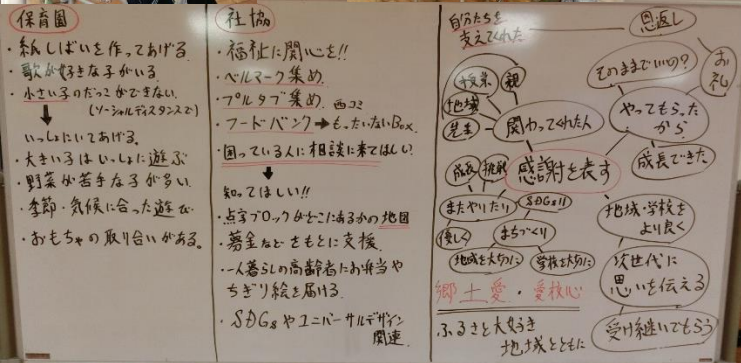 保育園
・紙しばいを作ってあげる。
・歌が好きな子がいる。
・小さい子のだっこができない。
(ソーシャルディスタンスで)
↓
いっしょにいてあげる。
・大きい子はいっしょに遊ぶ
・野菜が苦手な子が多い。
・季節・気候に合った遊び
・おもちゃの取り合いがある。
社協
・福祉に関心を!!
・ベルマーク集め
・プルタブ集め 西コミ
・フードバンク→もったいないBox
・困っている人に相談に来てほしい
↓
知ってほしい!!
・点字ブロックがどこにあるかの地図
・募金などをもとに支援
・一人暮らしの高齢者にお弁当や
ちぎり絵を届ける.
・SDGsやユニバーサルデザイン
関連
自分たちを
支えてくれた
恩返し
お礼
そのままでいいの?
やってもらった
から
成長できた
親
地域
先生
関わってくれた人
感謝を表す
成長
挑戦
またやりたり
優しく
SDGs11
まちづくり
地域を大切に
学校を大切に
地域・学校を
より良く
次世代に
思いを伝える
受け継いでもらう
郷土愛・愛校心
ふるさと大好き
地域とともに